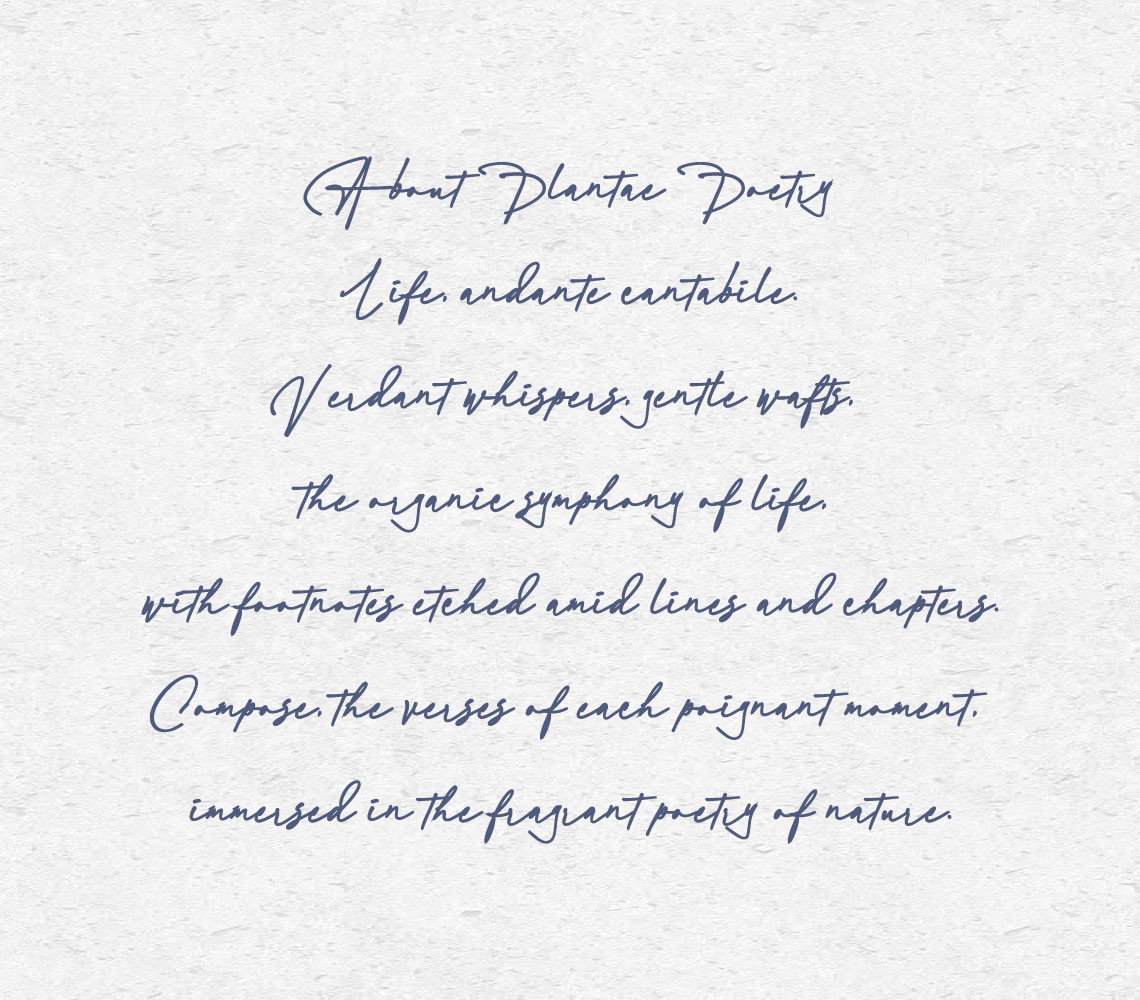 About Plantae Poetry
Life, andante cantabile.
Verdant whispers, gentle wafts,
the organic symphony of life,
with footnotes etched amid lines and chapters.
Compose, the verses of each poignant moment,
immersed in the fragrant poetry of nature.